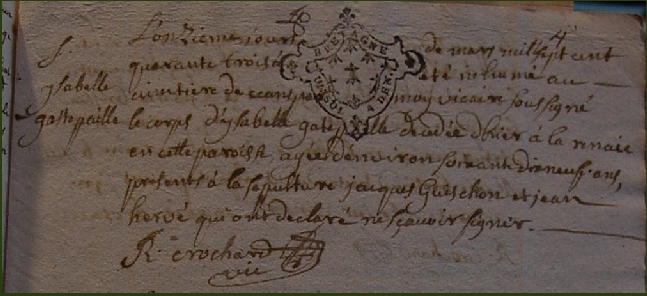 4
S
ysabelle
gastepaille
L'onzieme jour de mars mil sept cent
quarante trois a été inhumé au
cimetiere de ceans par moy vicaire soussigné
le corps d'ysabelle gatepaille decedée d'hier à la
en cette paroisse, agée d'environ soixante dixneuf ans,
presents à la sepulture jacques Guischon et jean
hervé qui ont declaré ne sçavoir signer.
R. crochard
vic
BRETAGNE
DEN.